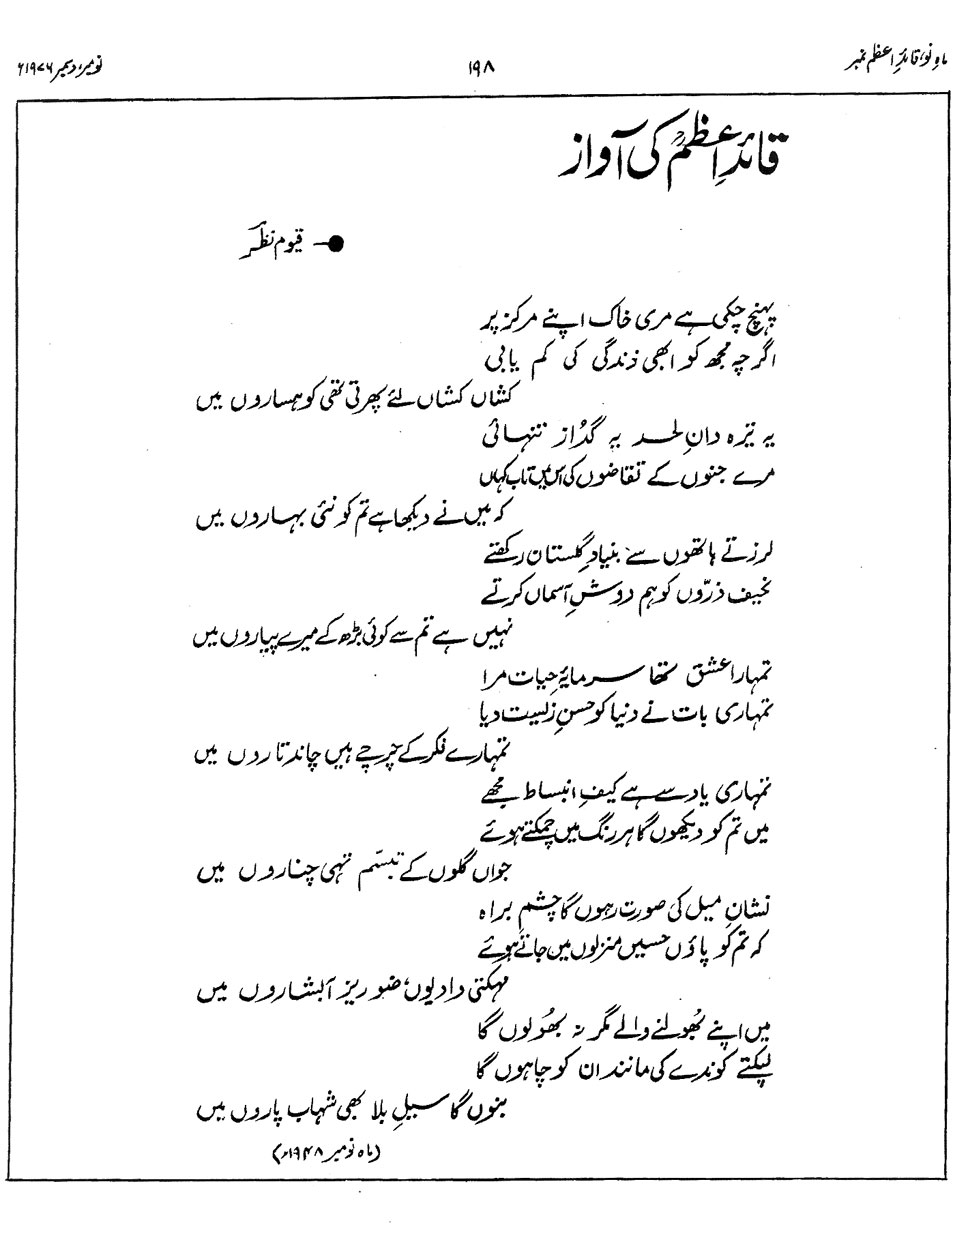 ماہِ نو، قائدِ اعظم نمبر
۱۹۸
نومبر، دسمبر ۱۹۷۶ء
قائدِ اعظمؒ کی آواز
قیوم نظر
پہنچ چکی ہے مری خاک اپنے مرکز پر
اگرچہ مجھ کو ابھی زندگی کی کم یابی
کشاں کشاں لئے پھرتی تھی کوہساروں میں
یہ تیرہ دانِ لحد یہ گدازِ تنہائی
مرے جنوں کے تقاضوں کی اس میں تاب کہاں
کہ میں نے دیکھا ہے تم کو نئی بہاروں میں
لرزتے ہاتھوں سے بنیادِ گلستان رکھتے
نحیف ذرّوں کو ہم دوشِ آسماں کرتے
نہیں ہے تم سے کوئی بڑھ کے میرے پیاروں میں
تمہارا عشق تھا سرمایۂ حیات مرا
تمہاری بات نے دنیا کو حسنِ زیست دیا
تمہارے فکر کے چرچے ہیں چاند تاروں میں
تمہاری یاد سے ہے کیفِ انبساط مجھے
میں تم کو دیکھوں گا ہر رنگ میں چمکتے ہوئے
جواں گلوں کے تبسّم تہی چناروں میں
نشانِ میل کی صورت رہوں گا چشم براہ
کہ تم کو پاؤں حسیں منزلوں میں جاتے ہوئے
مہکتی وادیوں، ضوریز آبشاروں میں
میں اپنے بُھولنے والے مگر نہ بُھولوں گا
لپکتے کوندے کی مانند ان کو چاہوں گا
بنوں گا سبیلِ بلا بھی شہاب پاروں میں
(ماہ نومبر ۱۹۴۸ء)